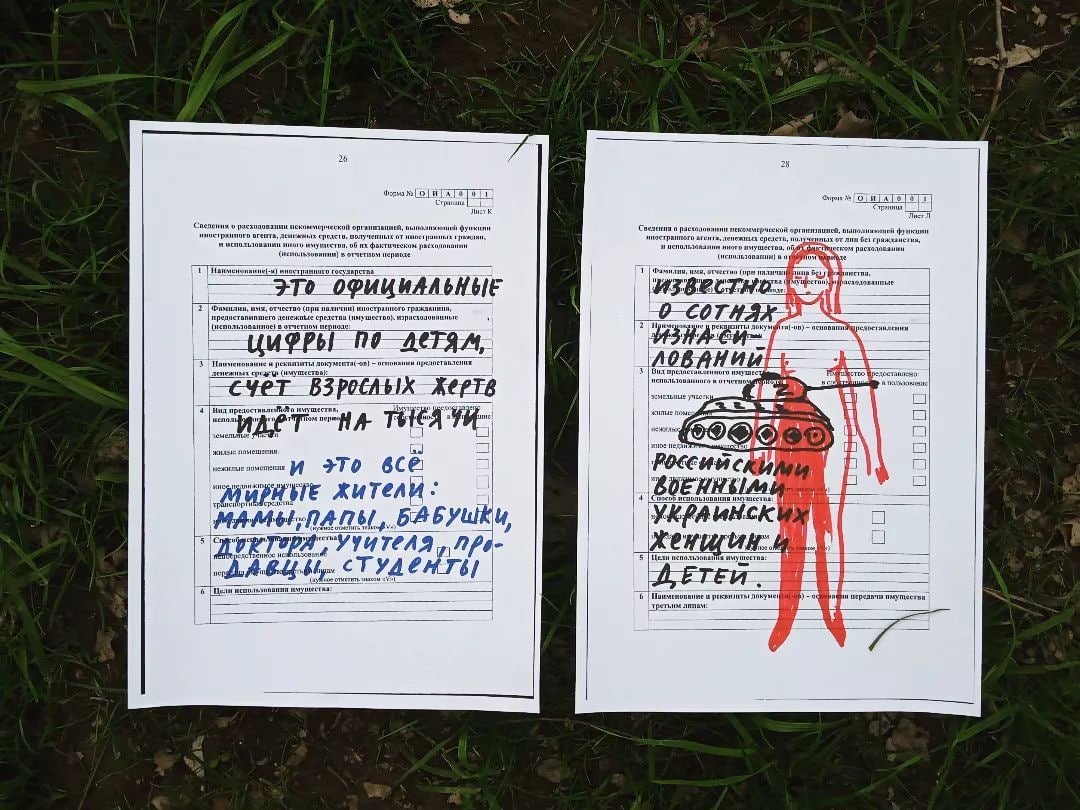 26
Форма № О И А 0 0 1
Страница
Лист К
Сведения о расходовании некоммерческой организацией, выполняющей функции
иностранного агента, денежных средств, полученных от иностранных граждан,
и использовании иного имущества, об их фактическом расходовании
(использовании) в отчетном периоде
1 Наименование(-я) иностранного государства
ЭТО ОФИЦИАЛЬНЫЕ
2 Фамилия, имя, отчество (при наличии) иностранного гражданина,
предоставившего денежные средства (имущество), израсходованные
(использованное) в отчетном периоде:
ЦИФРЫ ПО ДЕТЯМ,
3 Наименование и реквизиты документа(-ов) – основания предоставления
денежных средств (имущества):
СЧЁТ ВЗРОСЛЫХ ЖЕРТВ
4 Вид предоставленного имущества, Имущество предоставлено:
использованного в отчетном периоде
ИДЁТ НА ТЫСЯЧИ
земельные участки
жилые помещения
нежилые помещения
И ЭТО ВСЁ
иное недвижимое имущество
МИРНЫЕ ЖИТЕЛИ:
транспортные средства
МАМЫ, ПАПЫ, БАБУШКИ,
(нужное отметить знаком «V»)
5
ДОКТОРА, УЧИТЕЛЯ, ПРО-
непосредственное использование
ДАВЦЫ, СТУДЕНТЫ
(нужное отметить знаком «V»)
6 Цели использования имущества:
28
Форма № О И А 0 0 1
Страница
Лист Л
Сведения о расходовании некоммерческой организацией, выполняющей функции
иностранного агента, денежных средств, полученных от лиц без гражданства,
и использовании иного имущества, об их фактическом расходовании
(использовании) в отчетном периоде
1 Фамилия, имя, отчество (при наличии) лица без гражданства,
ИЗВЕСТНО
О СОТНЯХ
2 Наименование и реквизиты документа(-ов) – основания предоставления
ИЗНАСИ-
ЛОВАНИЙ
3 Вид предоставленного имущества, Имущество предоставлено:
использованного в отчетном периоде
земельные участки
жилые помещения
иное недвижимое имущество
РОССИЙСКИМИ
ВОЕННЫМИ
4 Способ использования имущества:
УКРАИНСКИХ
ЖЕНЩИН И
5 Цели использования имущества:
ДЕТЕЙ.
6 Наименование и реквизиты документа(-ов) – основания передачи имущества
третьим лицам: